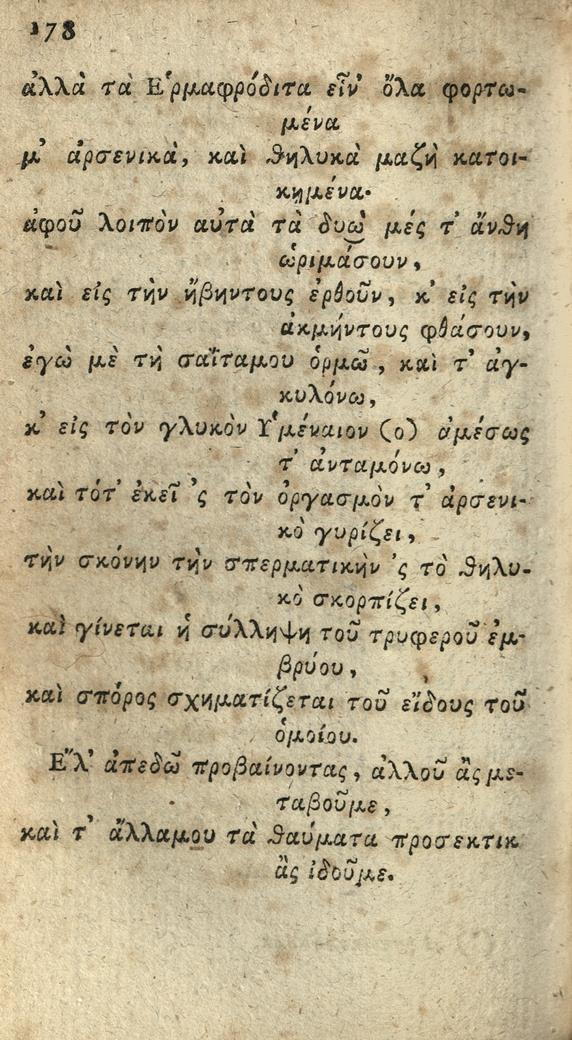 178
ἀλλὰ τὰ Ἑρμαφρόδιτα εἶν' ὅλα φορτω-
μένα
μ' ἀρσενικὰ, καὶ θηλυκὰ μαζὴ κατοι-
κημένα·
ἀφοῦ λοιπὸν αὐτὰ τὰ δυὼ μές τ' ἄνθη
ὡριμάσουν,
καὶ εἰς τὴν ἥβηντους ἐρθοῦν, κ' εἰς τὴν
ἀκμήντους φθάσουν,
ἐγὼ μὲ τὴ σαΐταμου ὁρμῶ, καὶ τ' ἀγ-
κυλόνω,
κ' εἰς τὸν γλυκὸν Ὑμέναιον (ο) ἀμέσως
τ' ἀνταμόνω,
καὶ τότ' ἐκεῖ 'ς τὸν ὀργασμὸν τ' ἀρσενι-
κὸ γυρίζει,
τὴν σκόνην τὴν σπερματικὴν 'ς τὸ θηλυ-
κὸ σκορπίζει,
καὶ γίνεται ἡ σύλληψη τοῦ τρυφεροῦ ἐμ-
βρύου,
καὶ σπόρος σχηματίζεται τοῦ εἴδους τοῦ
ὁμοίου.
Ἔλ' ἀπεδῶ προβαίνοντας, ἀλλοῦ ἂς με-
ταβοῦμε,
καὶ τ' ἄλλαμου τὰ θαύματα προσεκτικ
ἂς ἰδοῦμε.